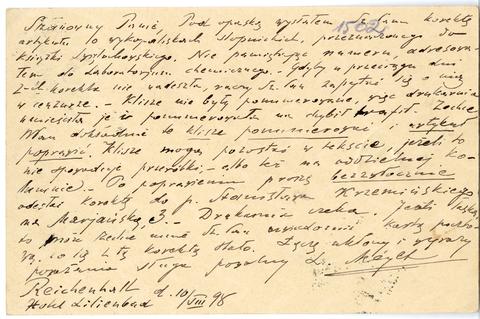 Szanowny Panie, Pod opaską wysłałem Sz. Panu korektę
1562
artykułu o wykopaliskach słupnickich, przeznaczonego do
książki . Nie pamiętając numeru, adresowa-
łem do Laboratorjum chemicznego. Gdyby w przeciągu dni
2-ch korekta nie nadeszła, raczy Sz. Pan zapytać się o nią
w cenzurze. – Klisze nie były ponumerowane, więc drukarnia
umieściła je i ponumerowała na chybił trafił. Zechce
Pan dokładnie te klisze ponumerować i artykuł
poprawić. Klisze mogą pozostać w tekście, jeżeli to
nie spowoduje przeróbki, – albo też na oddzielnej ko-
lumnie. – Po poprawieniu proszę bezzwłocznie
odesłać korektę do p. Stanisława Krzemińskiego
na Marjańską, 3. – Drukarnia czeka. Jeśli łaska,
to może zechce mnie Sz. Pan zawiadomić kartą poczto-
wą, co się z tą korektą stało. Łączę ukłony i wyrazy
poważania sługa powolny L. Méyet
Reichenhall d. 10/VIII 98
Hotel Lilienbad